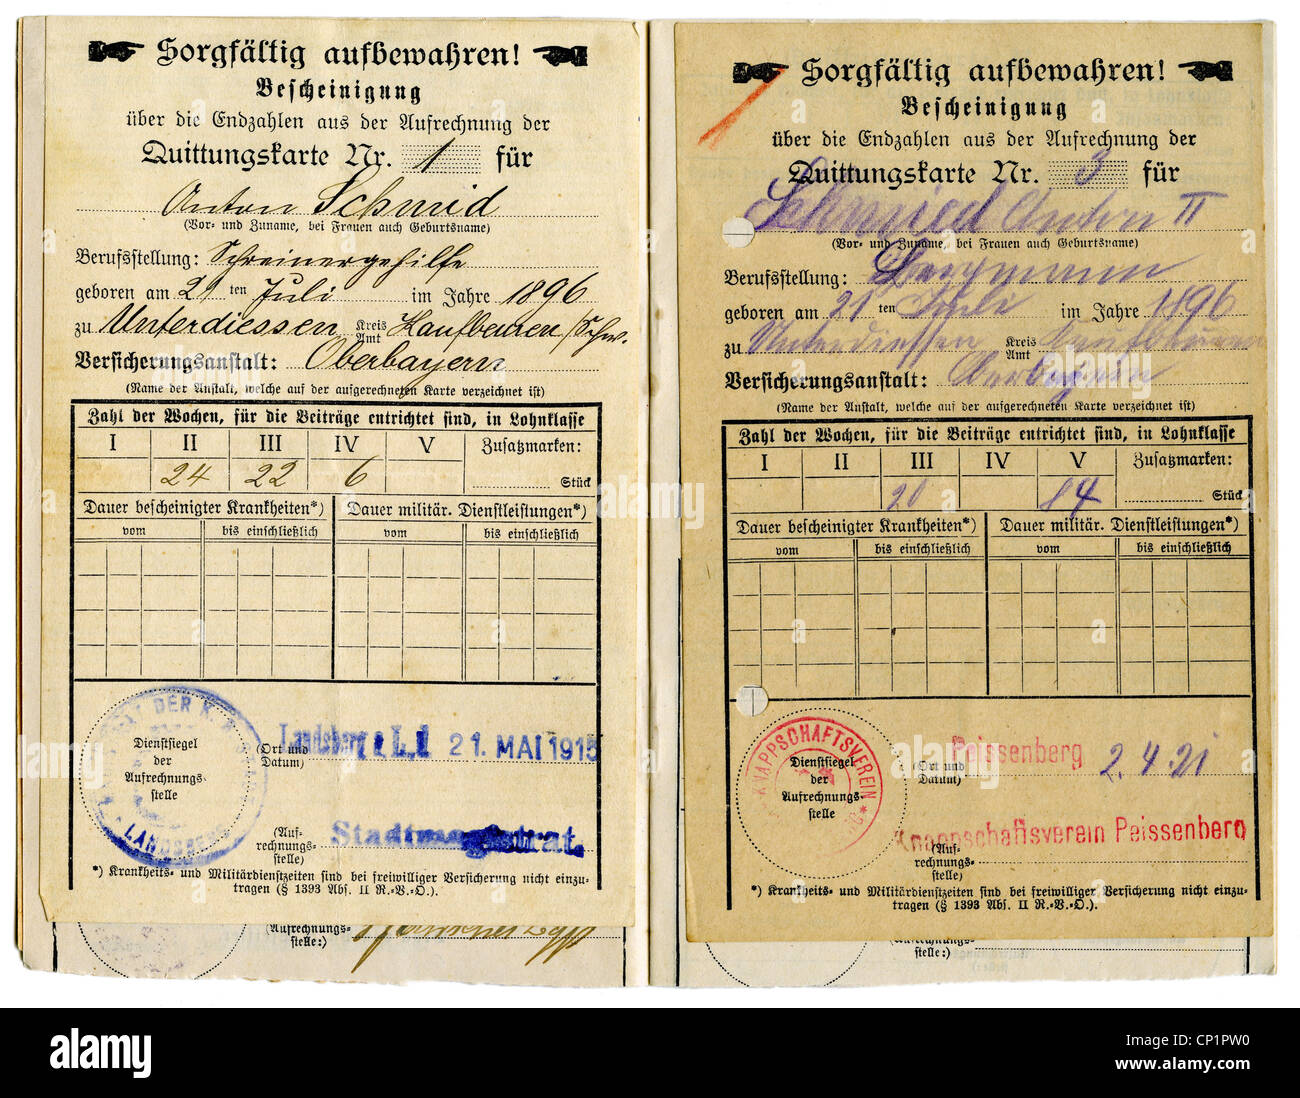 Sorgfältig aufbewahren!
Bescheinigung
über die Endzahlen aus der Aufrechnung der
Quittungskarte Nr. 1 für
Anton Schmid
(Vor- und Zuname, bei Frauen auch Geburtsname)
Berufsstellung: Schreinergehilfe
geboren am 21 ten Juli im Jahre 1896
zu Unterdiessen Kreis Amt Kaufbeuren/Schw.
Versicherungsanstalt: Oberbayern
(Name der Anstalt, welche auf der aufgerechneten Karte verzeichnet ist)
Zahl der Wochen, für die Beiträge entrichtet sind, in Lohnklasse
I II III IV V Zusatzmarken:
24 22 6 Stück
Dauer bescheinigter Krankheiten*) Dauer militär. Dienstleistungen*)
vom bis einschließlich vom bis einschließlich
Landsberg a. L. 21. MAI 1915
Dienstsiegel
der
Aufrechnungs-
stelle
(Ort und
Datum)
LANDSBERG
Stadtmagistrat.
(Auf-
rechnungs-
stelle)
*) Krankheits- und Militärdienstzeiten sind bei freiwilliger Versicherung nicht einzu-
tragen (§ 1393 Abs. II R.-V.-O.).
(Aufrechnungs-
stelle:)
Sorgfältig aufbewahren!
Bescheinigung
über die Endzahlen aus der Aufrechnung der
Quittungskarte Nr. 3 für
Schmied Anton II
(Vor- und Zuname, bei Frauen auch Geburtsname)
Berufsstellung: Bergmann
geboren am 21 ten Juli im Jahre 1896
zu Unterdiessen Kreis Amt Kaufbeuren
Versicherungsanstalt: Oberbayern
(Name der Anstalt, welche auf der aufgerechneten Karte verzeichnet ist)
Zahl der Wochen, für die Beiträge entrichtet sind, in Lohnklasse
I II III IV V Zusatzmarken:
20 84 Stück
Dauer bescheinigter Krankheiten*) Dauer militär. Dienstleistungen*)
vom bis einschließlich vom bis einschließlich
KNAPPSCHAFTSVEREIN
Peissenberg 2.4.21
Dienstsiegel
der
Aufrechnungs-
stelle
(Ort und
Datum)
Knappschaftsverein Peissenberg
(Auf-
rechnungs-
stelle)
*) Krankheits- und Militärdienstzeiten sind bei freiwilliger Versicherung nicht einzu-
tragen (§ 1393 Abs. II R.-V.-O.).
(Aufrechnungs-
stelle:)
(Aufrechnungs-
stelle:)
alamy
Image ID: CP1PW0
www.alamy.com